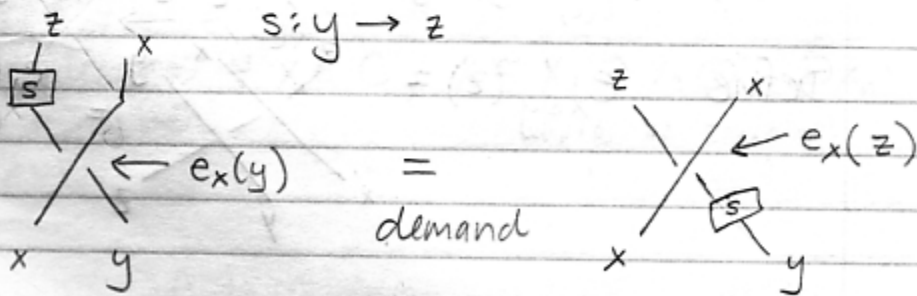 s: y → z
z x
s
← e_x(y)
=
demand
x y
z x
← e_x(z)
s
x y